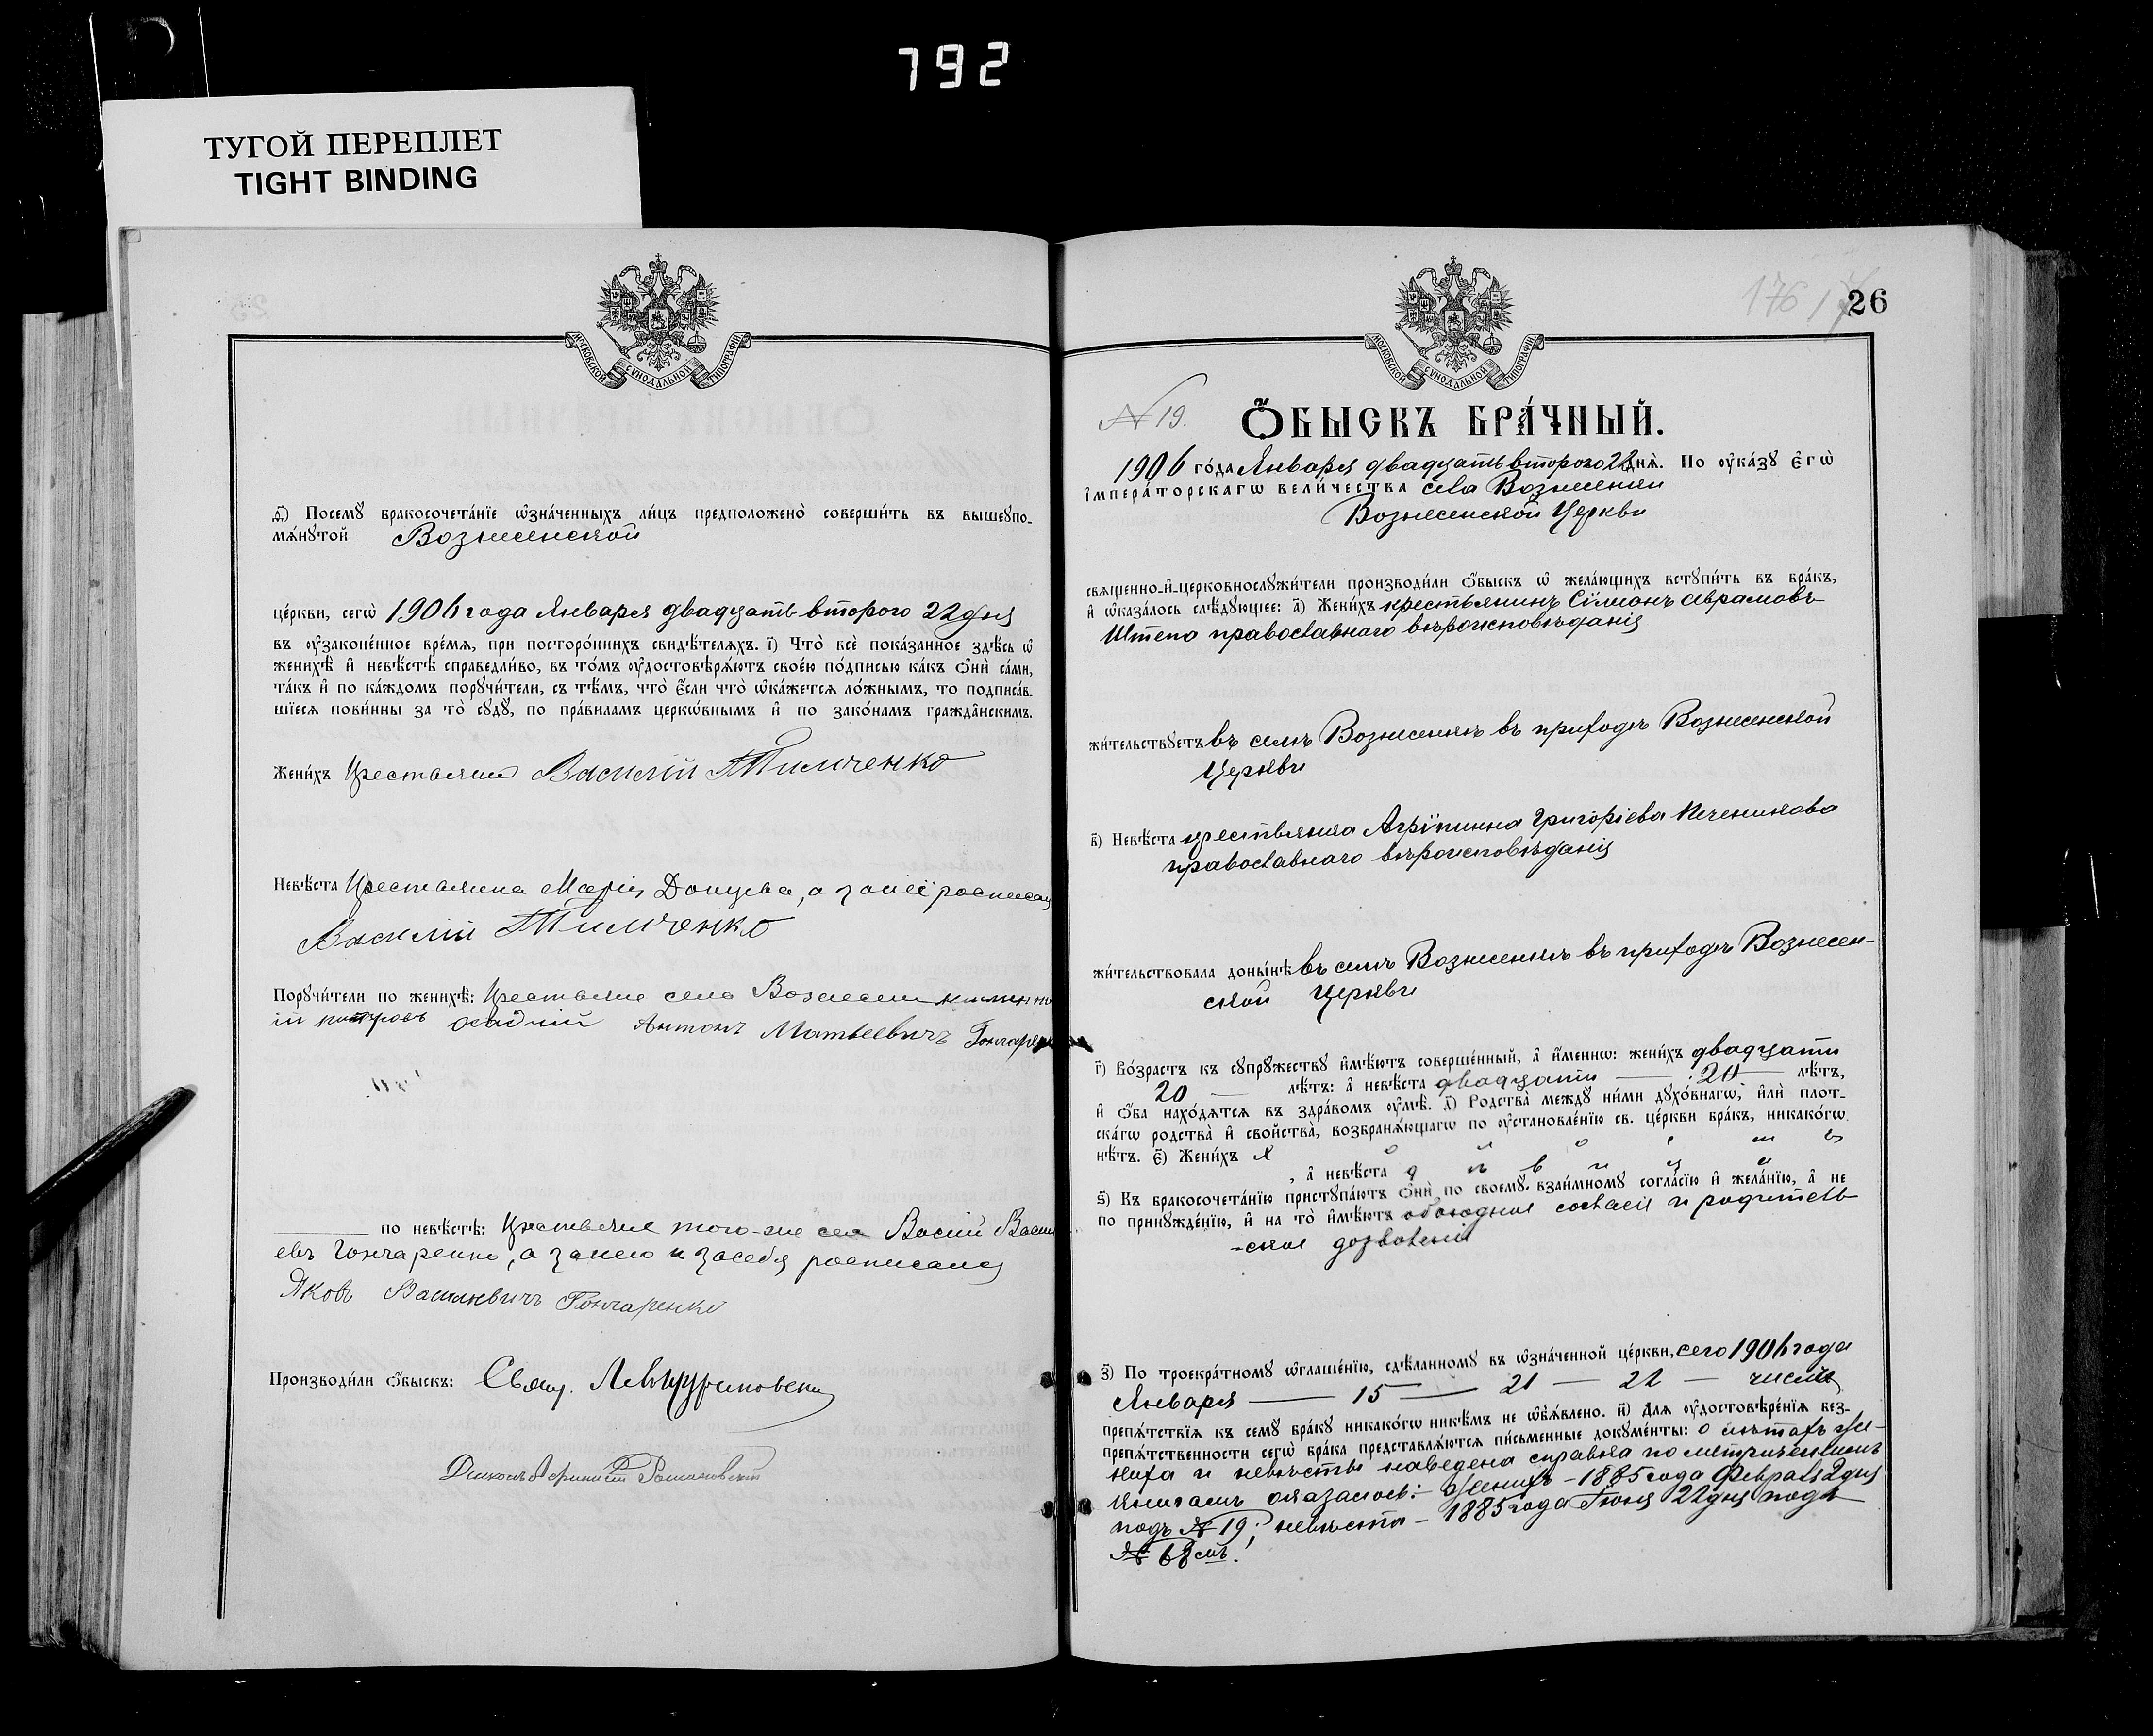 792
ТУГОЙ ПЕРЕПЛЕТ
TIGHT BINDING
МОСКОВСКОЙ СѴНОДАЛЬНОЙ ТИПОГРАФІИ
ѳ҃) Посемꙋ бракосочета́нїе ѡ҆зна́ченныхъ ли́цъ предположено̀ соверши́ть въ вышеꙋпо-
мѧ́нꙋтой Вознесенской
це́ркви, сегѡ̀ 1906 года Января двадцать второго 22 дня
въ ᲂу҆законе́нное вре́мѧ, при посторо́ннихъ свидѣ́телѧхъ. і҃) Что̀ всѐ пока́занное здѣ́сь ѡ҆
женихѣ̀ и҆ невѣ́стѣ справедли́во, въ то́мъ ᲂу҆достовѣрѧ́ютъ свое́ю по́дписью ка́къ ѻ҆нѝ са́ми,
та́къ и҆ по ка́ждомъ порꙋчи́тели, съ тѣ́мъ, что̀ є҆́сли что̀ ѡ҆ка́жетсѧ ло́жнымъ, то подписа́в-
шїесѧ пови́нны за то̀ сꙋдꙋ̀, по пра́виламъ церко́внымъ и҆ по зако́намъ гражда́нскимъ.
Жени́хъ Крестьянин Василій Тимченко
Невѣ́ста Крестьянка Марія Донцева, а за неё росписал
Василій Тимченко
Порꙋчи́тели по женихѣ̀: Крестьяне села
Антонъ Матвеевичъ Гончаренко
по невѣ́стѣ: Крестьяне того-же села Василій
евъ Гончаренко, а за нею и за себя росписался
Яковъ Васильевичъ Гончаренко
Производи́ли ѻ҆́быскъ: Свящ.
176
26
МОСКОВСКОЙ СѴНОДАЛЬНОЙ ТИПОГРАФІИ
N 19.
Ѻ҆́БЫСКЪ БРА́ЧНЫЙ.
1906 го́да Января двадцать второго 22 днѧ̀. По ᲂу҆ка́зꙋ є҆гѡ̀
і҆мпера́торскагѡ вели́чества села Вознесенки
Вознесенской Церкви
свѧщенно-и҆-церковнослꙋжи́тели производи́ли ѻ҆́быскъ ѡ҆ жела́ющихъ встꙋпи́ть въ бра́къ,
и҆ ѡ҆каза́лось слѣ́дꙋющее: а҃) Жени́хъ крестьянинъ Сімонъ Аврамовъ
Штепа православнаго вѣроисповѣданія
жи́тельствꙋетъ въ селѣ Вознесенкѣ въ приходѣ Вознесенской
Церкви
в҃) Невѣ́ста крестьянка Агріпинна Григоріева Печеникова
православнаго вѣроисповѣданія
жи́тельствовала доны́нѣ въ селѣ Вознесенкѣ въ приходѣ Вознесен-
ской Церкви
г҃) Во́зрастъ къ сꙋпрꙋ́жествꙋ и҆мѣ́ютъ соверше́нный, а҆ и҆́меннѡ: жени́хъ двадцати
20 лѣ́тъ: а҆ невѣ́ста двадцати 20 лѣ́тъ,
и҆ ѻ҆́ба нахо́дѧтсѧ въ здра́вомъ ᲂу҆мѣ̀. д҃) Родства̀ междꙋ ни́ми дꙋхо́внагѡ, и҆лѝ плот-
ска́гѡ родства̀ и҆ свойства̀, возбранѧ́ющагѡ по ᲂу҆становле́нїю св. це́ркви бра́къ, никако́гѡ
нѣ́тъ. є҃) Жени́хъ х о л о с т ъ
, а҆ невѣ́ста д ѣ в и ц а
ѕ҃) Къ бракосочета́нїю пристꙋпа́ютъ ѻ҆нѝ по своемꙋ̀ взаи́мномꙋ согла́сїю и҆ жела́нїю, а҆ не
по принꙋжде́нїю, и҆ на то̀ и҆мѣ́ютъ обоюдное согласіе и родитель-
-ское дозволеніе
з҃) По троекра́тномꙋ ѡ҆глаше́нїю, сдѣ́ланномꙋ въ ѡ҆зна́ченной це́ркви, сего 1906 года
Января — 15 — 21 — 22 — числъ
препѧ́тствїѧ къ семꙋ̀ бра́кꙋ никако́гѡ никѣ́мъ не ѡ҆б̾ѧ́влено. и҃) Длѧ ᲂу҆достовѣре́нїѧ без-
препѧ́тственности сегѡ̀ бра́ка представлѧ́ютсѧ пи́сьменные докꙋме́нты: о лѣтахъ же-
ниха и невѣсты наведена справка по метрическимъ
книгамъ оказалось: женихъ - 1885 года Февраля 2 дня
подъ № 19; невѣста - 1885 года Іюня 22 дня подъ
№ 68 смъ.